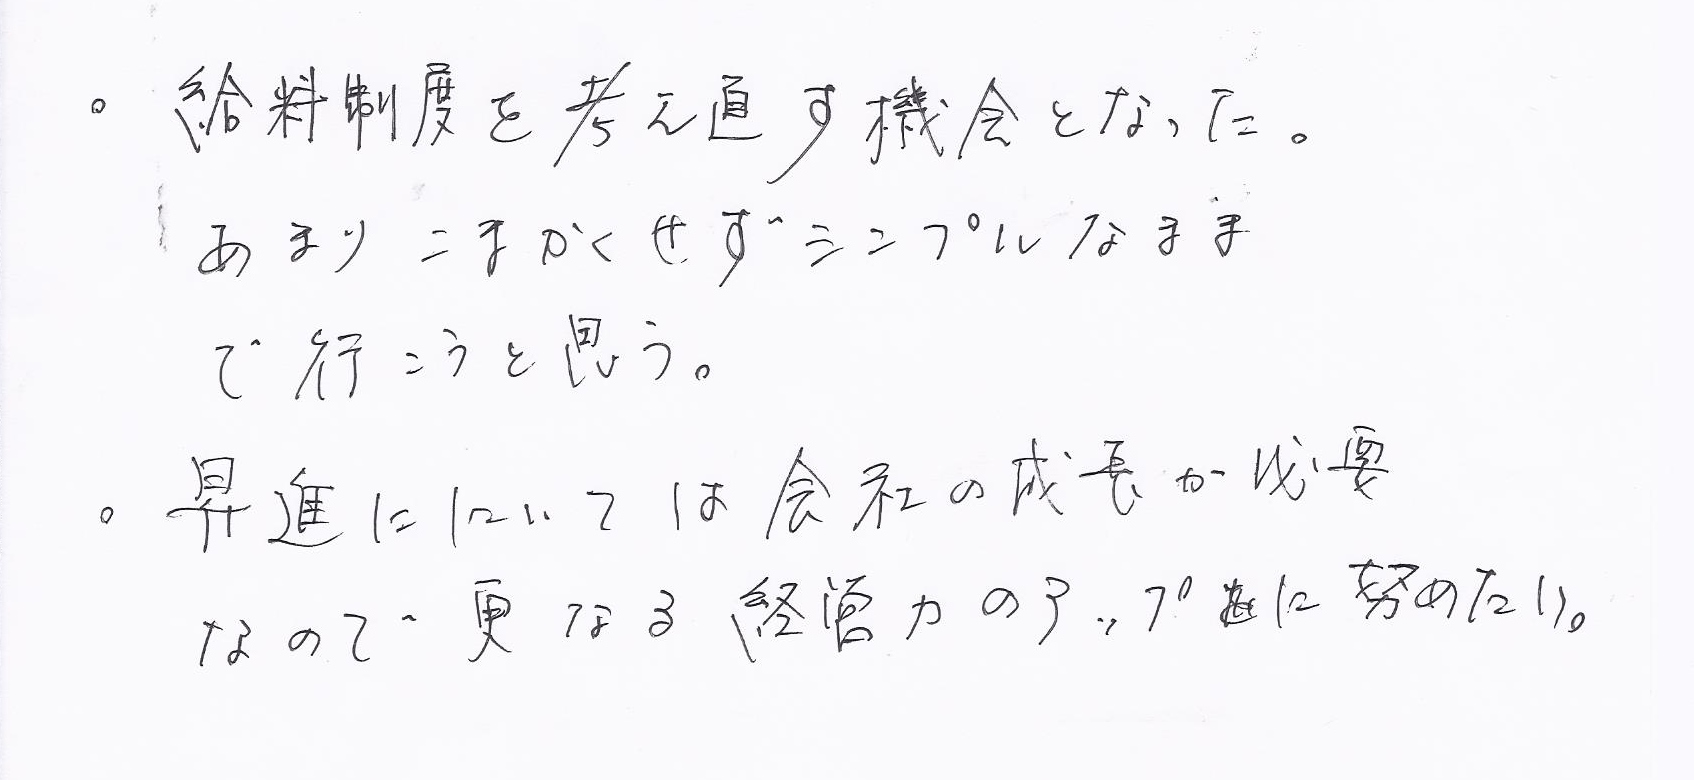 。給料制度を考え直す機会となった。
あまりこまかくせずシンプルなまま
で行こうと思う。
。昇進にに於いては会社の成長が必要
なので更なる経営力のアップに努めたい。